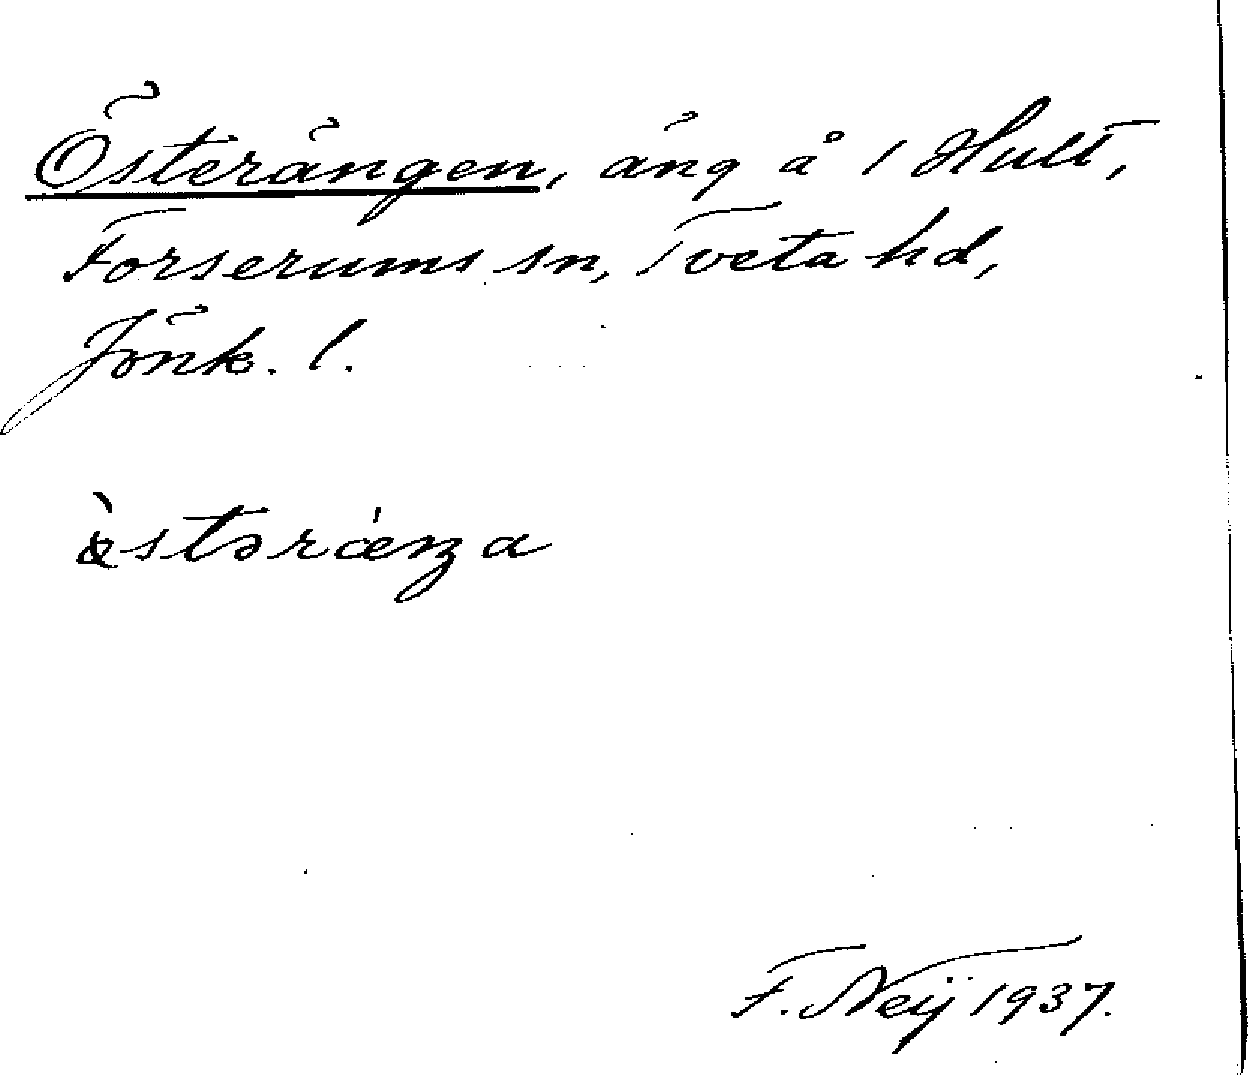 Österängen, äng å 1 Hult,
Forserums sn, Tveta hd,
Jönk. l.
F. Neij 1937.